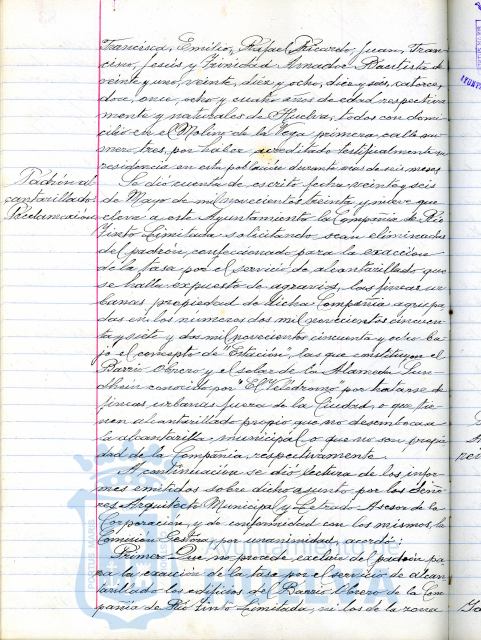 Francisca, Emilio, Rafael, Ricardo, Juan, Fran-
cisco, Jesús y Trinidad Amador Bautista de
veinte y uno, veinte, diez y ocho, diez y seis, catorce,
doce, once, ocho y cuatro años de edad respectiva-
mente y naturales de Huelva, todos con domi-
cilio en el Molino de la Vega primera calle nú-
mero tres, por haber acreditado testifialmente su
residencia en esta población durante mas de seis meses
Padrón al-
cantarillado
Reclamación
Se dió cuenta de escrito fecha veinte y seis
de Mayo de mil novecientos treinta y nueve que
eleva a este Ayuntamiento la Compañía de Rio
Tinto Limitada solicitando sean eliminadas
del padrón, confeccionado para la exacción
de la tasa por el servicio de alcantarillado que
se halla expuesto de agravios, las fincas ur-
banas propiedad de dicha Compañía agrupa-
das en los números dos mil novecientos cincuen-
ta y siete y dos mil novecientos cincuenta y ocho ba-
jo el concepto de "Estación", las que constituyen el
Barrio Obrero y el solar de la Alameda Sun-
dheim conocido por "El Velódromo" por tratarse de
fincas urbanas fuera de la Ciudad, o que tie-
nen alcantarillado propio que no desemboca a
la alcantarilla municipal o que no son propie-
dad de la Compañía, respectivamente.
A continuación se dió lectura de los infor-
mes emitidos sobre dicho asunto por los Seño-
res Arquitecto Municipal y Letrado Asesor de la
Corporación, y de conformidad con los mismos, la
Comisión Gestora, por unanimidad, acordó:
Primero. Que no procede excluir del padrón pa-
ra la exacción de la tasa por el servicio de alcan-
tarillado los edificios del Barrio Obrero de la Com-
pañía de Rio Tinto Limitada, ni los de la zona
PORTUS MARIS
Ayuntamiento de